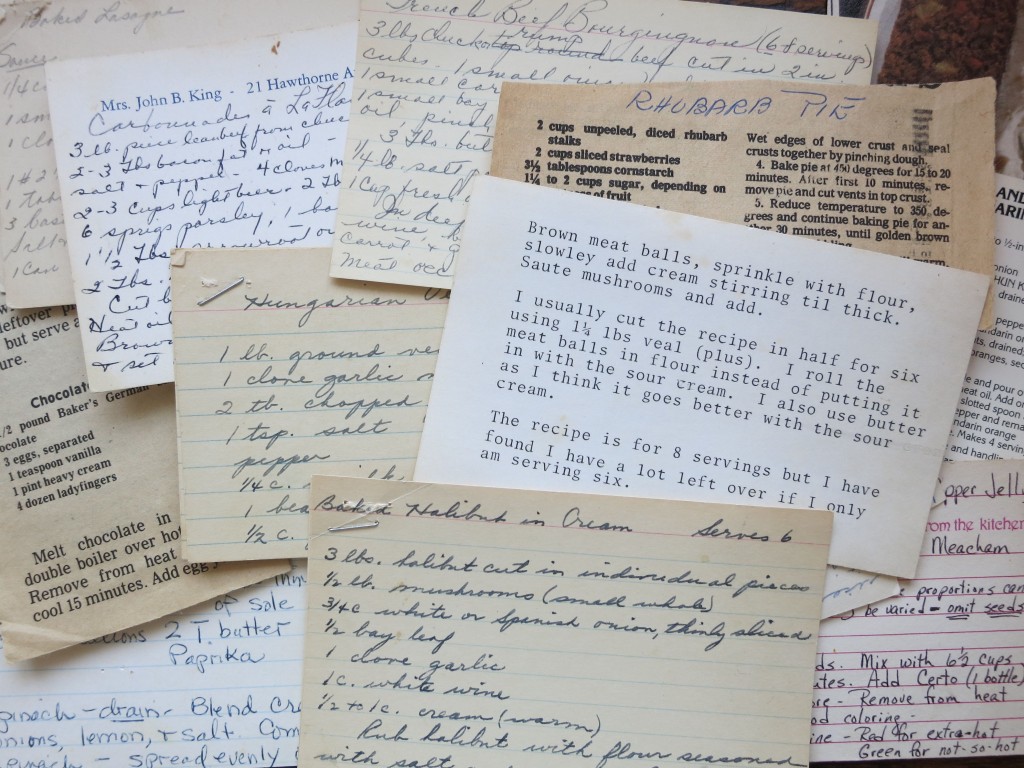 Baked Lasagne
Sauce
1/4 c
1 sm
1 clo
1 can
Mrs. John B. King - 21 Hawthorne A
Carbonnades à La Fla
3 lb. piece lean beef from chuc
2-3 Tbs bacon fat or oil -
salt + pepper - 4 cloves
2-3 cups light beer - 2 Tb
6 sprigs parsley, 1 ba
1 1/2 Tbs arrowroot or
2 Tbs.
Cut b
Heat oil
Brown
+ set
French Beef Bourguignon (6-8 servings)
3 lbs chuck or top round rump beef cut in 2 in
cubes - 1 small
1 small car
1 small bay
oil, pinch
3 Tbs. but
1/4 lb. salt p
1 cup fresh
In deep
wine, b
carrot +
meat occ
RHUBARB PIE
2 cups unpeeled, diced rhubarb
stalks
2 cups sliced strawberries
3½ tablespoons cornstarch
1¼ to 2 cups sugar, depending on
of fruit
Wet edges of lower crust and seal
crusts together by pinching dough.
4. Bake pie at 450 degrees for 15 to 20
minutes. After first 10 minutes, re-
move pie and cut vents in top crust.
5. Reduce temperature to 350 de-
grees and continue baking pie for an-
other 30 minutes, until golden brown
Brown meat balls, sprinkle with flour,
slowley add cream stirring til thick.
Saute mushrooms and add.
I usually cut the recipe in half for six
using 1¼ lbs veal (plus). I roll the
meat balls in flour instead of putting it
in with the sour cream. I also use butter
as I think it goes better with the sour
cream.
The recipe is for 8 servings but I have
found I have a lot left over if I only
am serving six.
Hungarian
1 lb. ground ve
1 clove garlic
2 tb. chopped
1 tsp. salt
pepper
1/4 c.
1 bea
1/2 c.
leftover
but serve a
ure.
Chocolate
1/2 pound Baker's German
ocolate
3 eggs, separated
1 teaspoon vanilla
1 pint heavy cream
4 dozen ladyfingers
Melt chocolate in
double boiler over ho
Remove from heat
cool 15 minutes. Add egg
Baked Halibut in Cream Serves 6
3 lbs. halibut cut in individual pieces
1/2 lb. mushrooms (small whole)
3/4 c white or Spanish onion, thinly sliced
1/2 bay leaf
1 clove garlic
1 c. white wine
1/2 to 1 c. cream (warm)
Rub halibut with flour seasoned
with salt
of sole
2 T. butter
Paprika
spinach - drain - Blend cre
onions, lemon, + salt. Com
spread evenly
AND
onion
pepper
mandarin or
ts, drained
oranges, sec
e and pour o
eat oil. Add o
slotted spoon
epper and rema
mandarin orange
. Makes 4 serving
and handlin
epper Jelly
rom the kitchen
Meacham
proportions can
be varied - omit seeds
ds. Mix with 6½ cups
utes. Add Certo (1 bottle)
Remove from heat
od coloring -
ine - Red for extra-hot
Green for not-so-hot